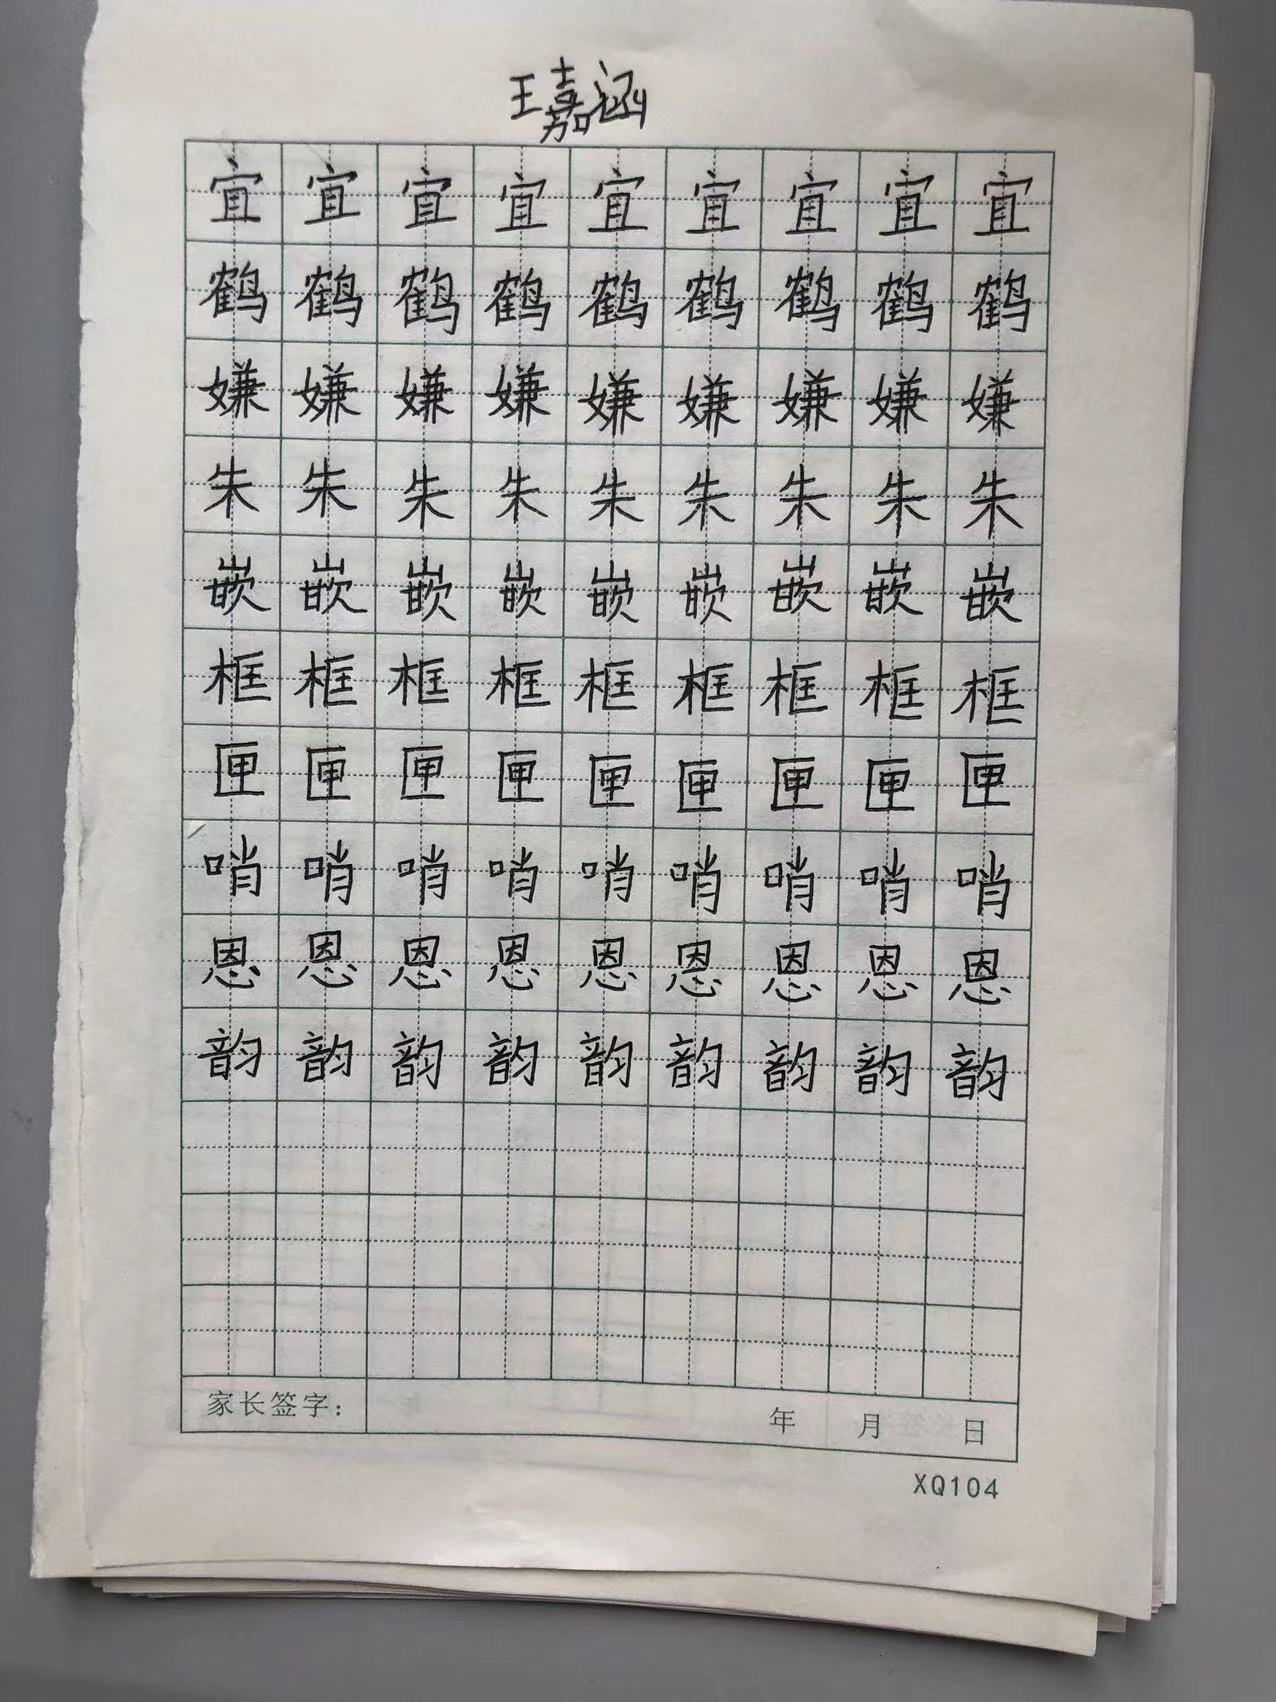 王嘉涵
宜宜宜宜宜宜宜宜宜
鹤鹤鹤鹤鹤鹤鹤鹤鹤
嫌嫌嫌嫌嫌嫌嫌嫌嫌
朱朱朱朱朱朱朱朱朱
嵌嵌嵌嵌嵌嵌嵌嵌嵌
框框框框框框框框框
匣匣匣匣匣匣匣匣匣
哨哨哨哨哨哨哨哨哨
恩恩恩恩恩恩恩恩恩
韵韵韵韵韵韵韵韵韵
家长签字： 年 月 日
XQ104